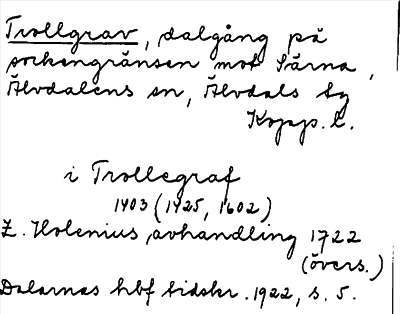 Trollgrav, dalgång på
sockengränsen mot Särna,
Älvdalens sn, Älvdals tg
Kopp. l.
i Trollegraf
1403 (1425, 1602)
Z. Holenius, avhandling 1722
(övers.)
Dalarnas hbf tidskr. 1922, s. 5.